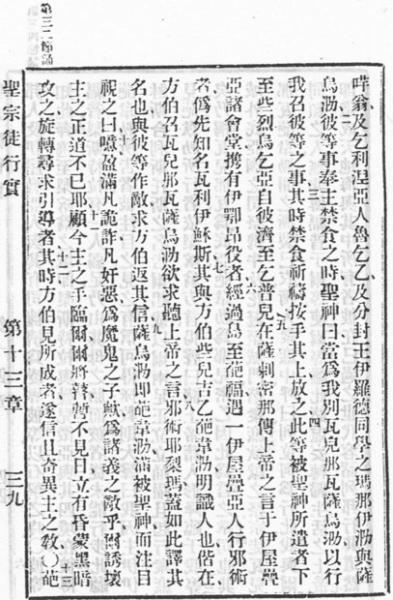 嘩翁及乞利湼亞人魯乞乙及分封王伊羅德同學之瑪那伊泐與薩
烏泐彼等事奉主禁食之時聖神曰當爲我別瓦兒那瓦薩烏泐以行
我召彼等之事其時禁食祈禱按手其上放之此等被聖神所遣者下
至些烈烏乞亞自彼濟至乞普兒在薩剌密那傳上帝之言于伊屋疊
亞諸會堂携有伊鄂昂役者經過島至葩福遇一伊屋疊亞人行邪術
者僞先知名瓦利伊穌斯其與方伯些兒吉乙葩韋泐明識人也偕在
方伯召瓦兒那瓦薩烏泐欲求聽上帝之言邪術耶梨瑪蓋如此譯其
名也與彼等作敵求方伯返其信薩烏泐即葩韋泐滿被聖神而注目
視之曰噫盈滿凡詭詐凡奸惡爲魔鬼之子歟爲諸義之敵乎爾誘壞
主之正道不已耶顧今主之手臨爾爾將瞽暫不見日立有昏蒙黑暗
攻之旋轉尋求引導者其時方伯見所成者遂信且奇異主之敎○葩
聖宗徒行實 第十三章 三九